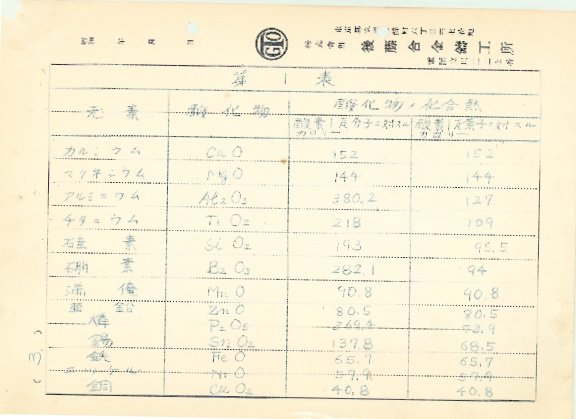 昭和 年 月 日
株式会社 後藤合金鋳工所
第 1 表
元素 酸化物 酸化物ノ化合熱
カルシウム CaO 152 152
マグネシウム MgO 144 144
アルミニウム Al2O3 380.2 127
チタニウム TiO2 218 109
硅素 SiO2 193 96.5
硼素 B2O3 282.1 94
満俺 MnO 90.8 90.8
亜鉛 ZnO 80.5 80.5
燐 P2O5 73.9
錫 SnO2 137.8 68.5
鉄 FeO 65.7 65.7
NiO 57.9 57.9
銅 40.8 40.8
(3)